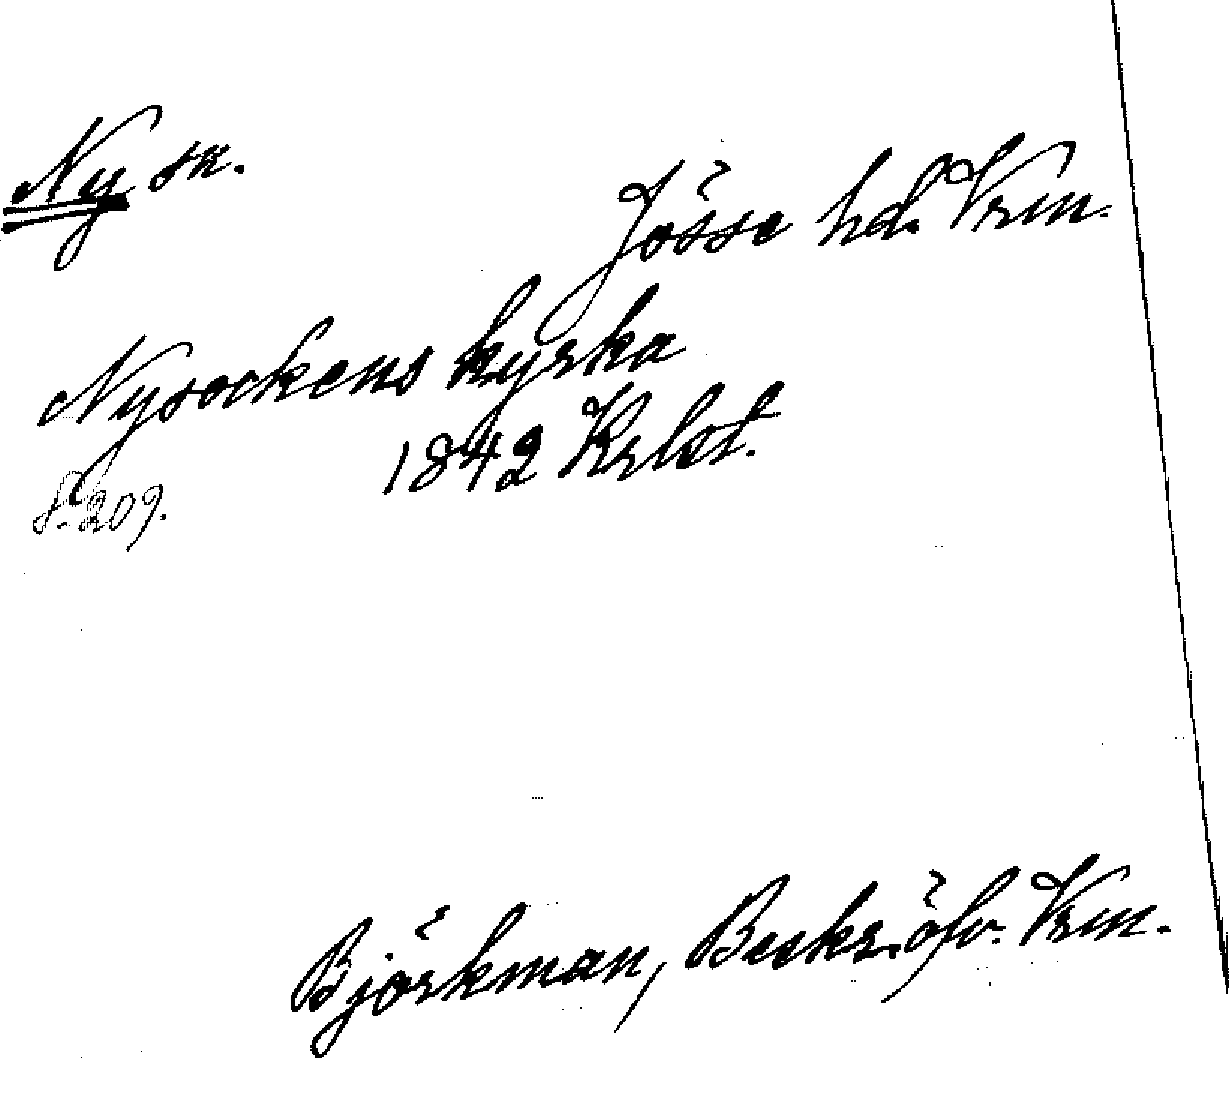 Ny sn.
Jösse hd. Vrm.
Nysockens kyrka
1842 Krlst.
S. 209.
Björkman, Beskr. öfv. Vrm.